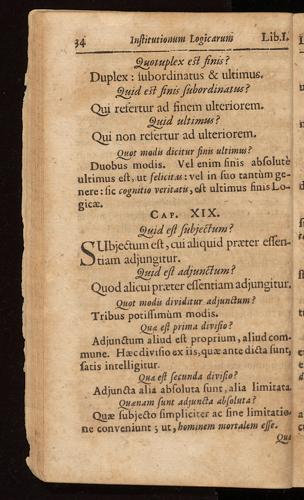 34 Institutionum Logicarum Lib.I.
Quotuplex est finis?
Duplex: subordinatus & ultimus.
Quid est finis subordinatus?
Qui refertur ad finem ulteriorem.
Quid ultimus?
Qui non refertur ad ulteriorem.
Quot modis dicitur finis ultimus?
Duobus modis. Vel enim finis absolutè
ultimus est, ut felicitas: vel in suo tantùm ge-
nere: sic cognitio veritatis, est ultimus finis Lo-
gicæ.
CAP. XIX.
Quid est subjectum?
SUbjectum est, cui aliquid præter essen-
tiam adjungitur.
Quid est adjunctum?
Quod alicui præter essentiam adjungitur.
Quot modis dividitur adjunctum?
Tribus potissimùm modis.
Quæ est prima divisio?
Adjunctum aliud est proprium, aliud com-
mune. Hæc divisio ex iis, quæ ante dicta sunt,
satis intelligitur.
Quæ est secunda divisio?
Adjuncta alia absoluta sunt, alia limitata.
Quænam sunt adjuncta absoluta?
Quæ subjecto simpliciter ac sine limitatio-
ne conveniunt; ut, hominem mortalem esse.
Quæ